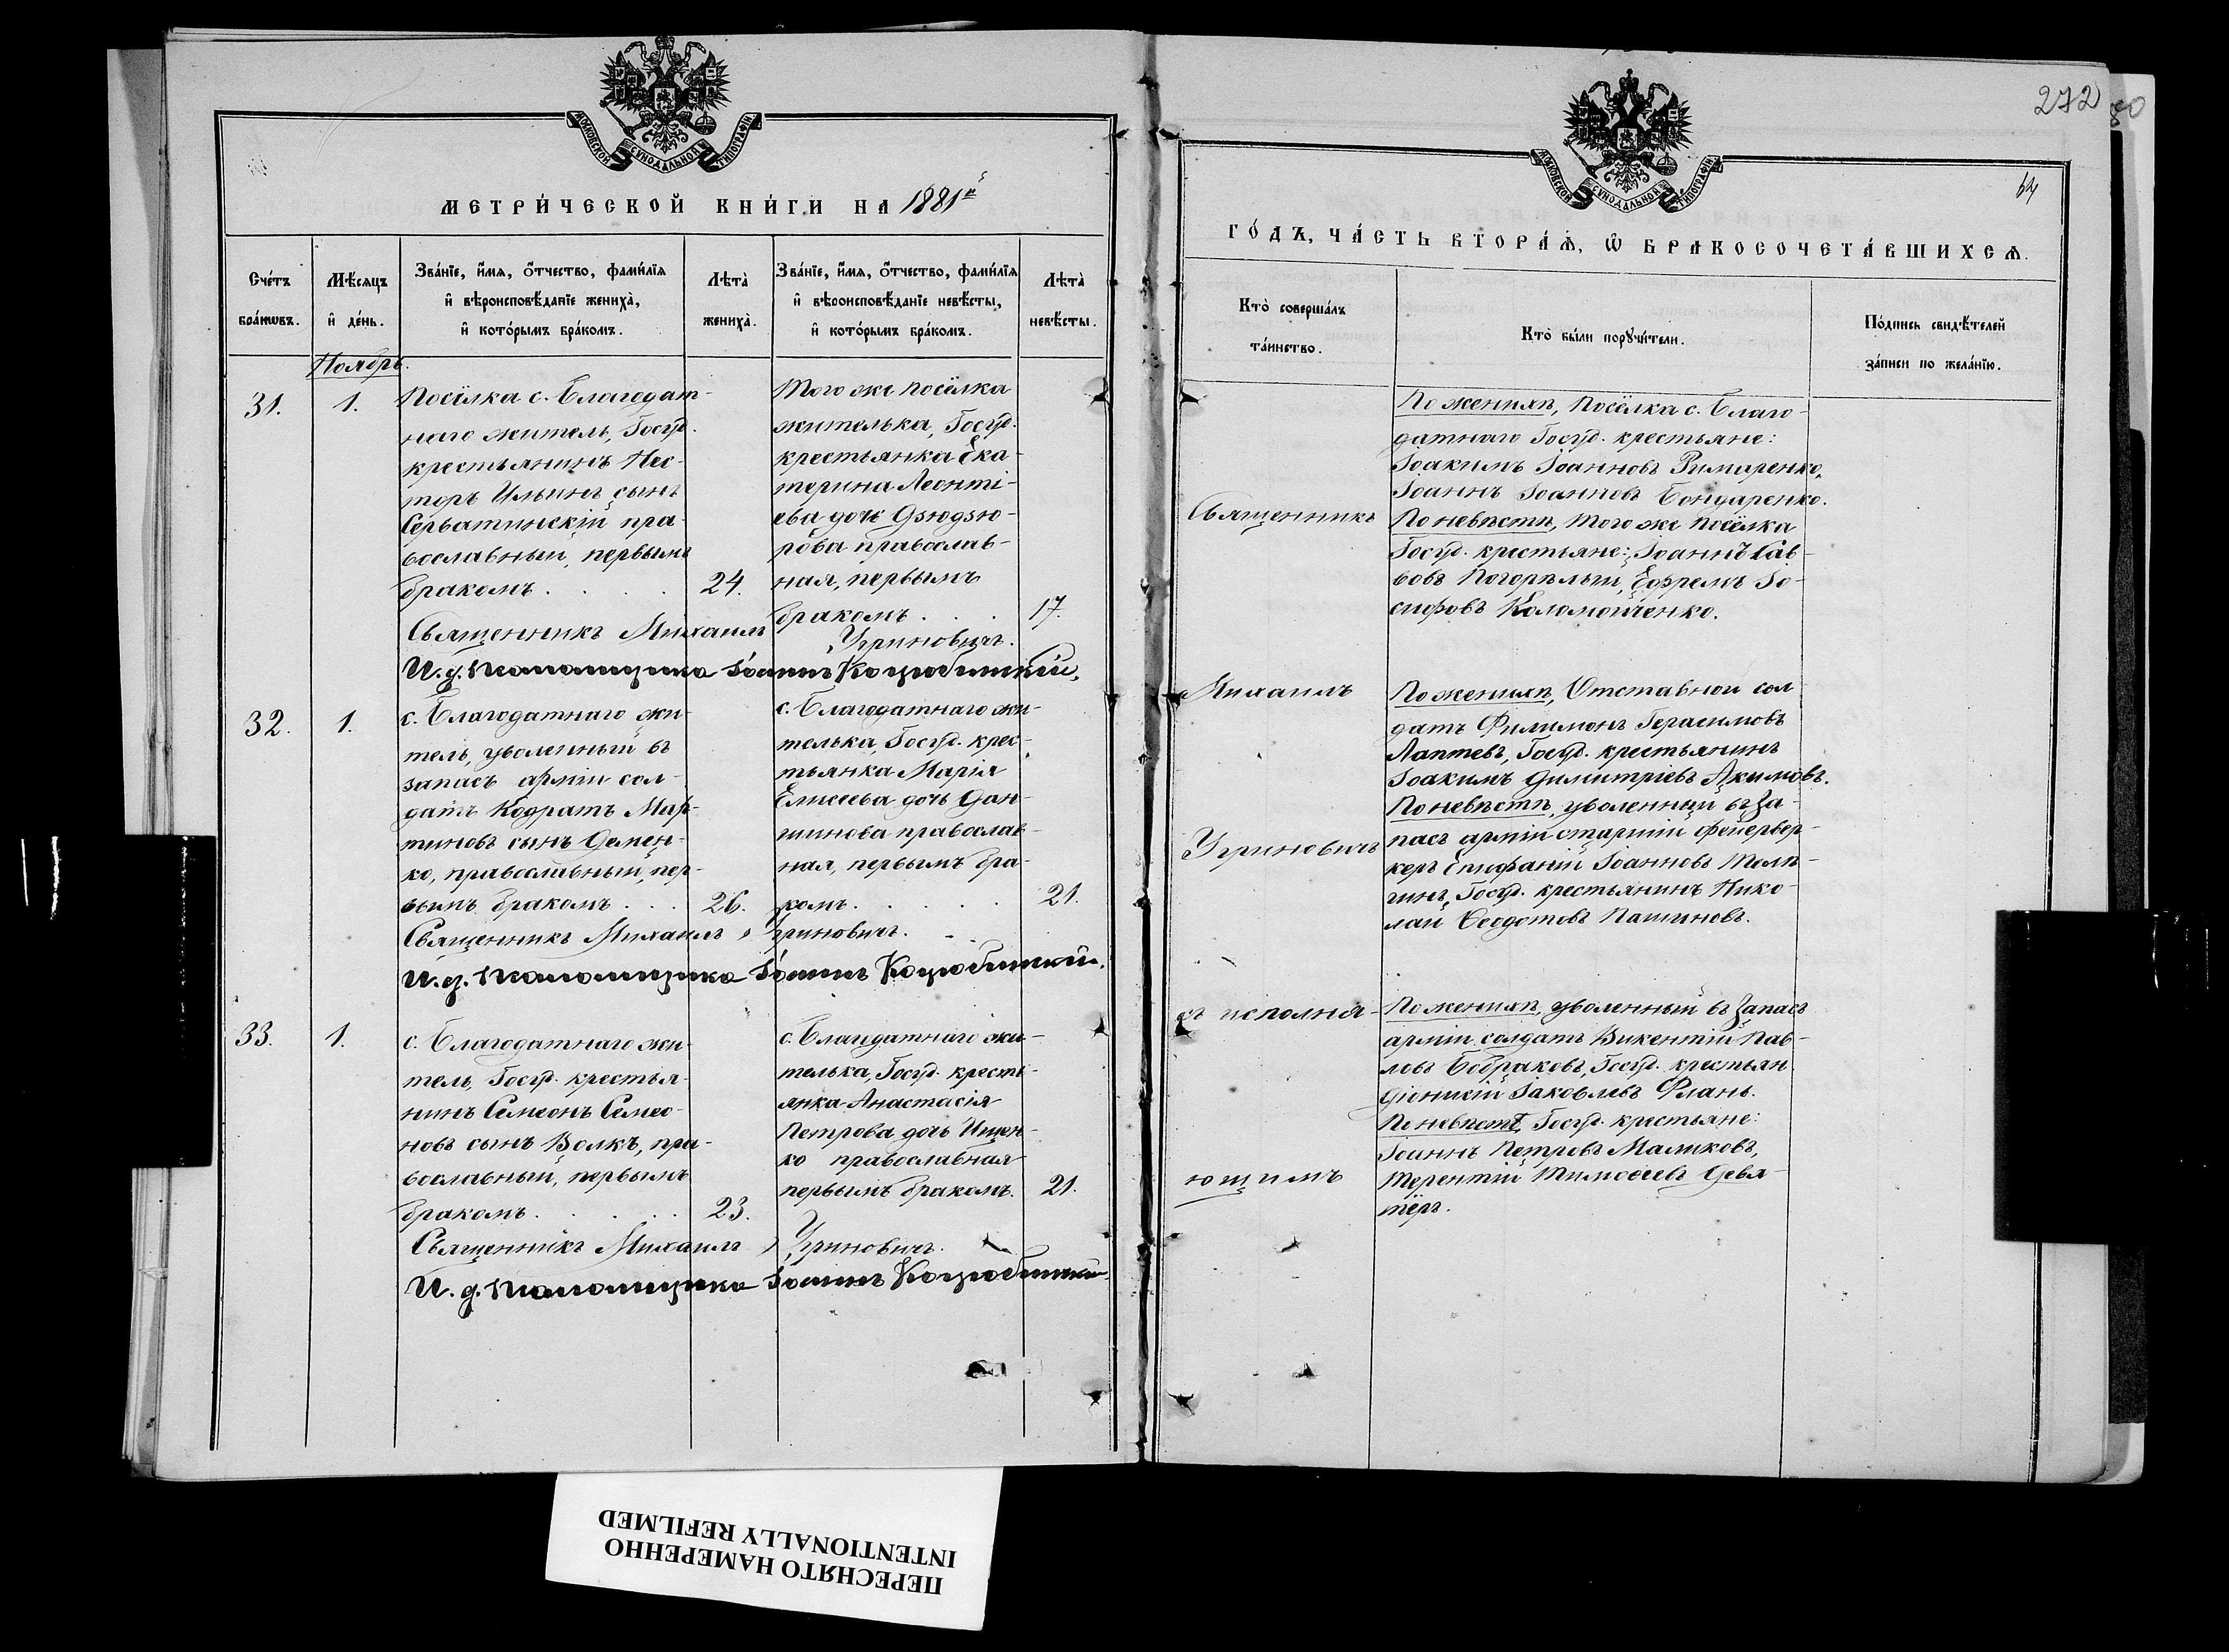 МОСКОВСКОЙ СѴНОДАЛЬНОЙ ТИПОГРАФІИ
МЕТРИ́ЧЕСКОЙ КНИ́ГИ НА 1881й
Сче́тъ бра́кѡвъ.
Мѣ́сяцъ и҆ де́нь.
Зва́нїе, и҆́мя, ѻ҆́тчество, фами́лїя
и҆ вѣроисповѣ́данїе жениха̀,
и҆ кото́рымъ бра́комъ.
Лѣта̀ жениха̀.
Зва́нїе, и҆́мя, ѻ҆́тчество, фами́лїя
и҆ вѣроисповѣ́данїе невѣ́сты,
и҆ кото́рымъ бра́комъ.
Лѣта̀ невѣ́сты.
Ноябрь.
31.
1.
Посёлка с. Благодат-
наго житель, Госуд.
крестьянинъ Нес-
торъ Ильинъ сынъ
Серватинскій пра-
вославный, первымъ
бракомъ
24.
Того же посёлка
жителька, Госуд.
крестьянка Ека-
терина Леонті-
ева дочь Дзюдзю-
рова православ-
ная, первымъ
бракомъ
17.
Священникъ Михаилъ Угриновичъ.
И. д. Псаломщика Іоаннъ Коцюбинскій.
32.
1.
с. Благодатнаго жи-
тель, уволенный въ
запасъ арміи сол-
датъ Кодратъ Мар-
тиновъ сынъ Демен-
ко, православный, пер-
вымъ бракомъ
26.
с. Благодатнаго жи-
телька, Госуд. крес-
тьянка Марія
Елисеева дочь Дан-
шинова православ-
ная, первымъ бра-
комъ.
21.
Священникъ Михаилъ Угриновичъ.
И. д. Псаломщика Іоаннъ Коцюбинскій.
33.
1.
с. Благодатнаго жи-
тель, Госуд. крестья-
нинъ Симеонъ Симео-
новъ сынъ Волкъ, пра-
вославный, первымъ
бракомъ
23.
с. Благодатнаго жи-
телька, Госуд. кресть-
янка Анастасія
Петрова дочь Ищен-
ко православная
первымъ бракомъ.
21.
Священникъ Михаилъ Угриновичъ.
И. д. Псаломщика Іоаннъ Коцюбинскій.
272
80
64
МОСКОВСКОЙ СѴНОДАЛЬНОЙ ТИПОГРАФІИ
ГО́ДЪ, ЧА́СТЬ ВТОРА́Я, Ѡ҆ БРАКОСОЧЕТА́ВШИХСЯ.
Кто̀ соверша́лъ
та́инство.
Кто̀ бы́ли порꙋчи́тели.
По́дпись свидѣ́телей
за́писи по жела́нїю.
Священникъ
Михаилъ
Угриновичъ
съ исполня-
ющимъ
По женихѣ, Посёлка с. Благо-
датнаго Госуд. крестьяне:
Іоакимъ Іоанновъ Римаренко,
Іоаннъ Іоанновъ Бондаренко.
По невѣстѣ, того же посёлка
Госуд. крестьяне: Іоаннъ Сав-
вовъ Погорѣлый, Ефремъ Іо-
сифовъ Коломойченко.
По женихѣ, Отставной сол-
датъ Филимонъ Герасимовъ
Лаптевъ, Госуд. крестьянинъ
Іоакимъ Димитріевъ Акимовъ.
По невѣстѣ, уволенный въ за-
пасъ арміи старшій фейервер-
керъ Епифаній Іоанновъ Телѣ-
гинъ, Госуд. крестьянинъ Нико-
лай Ѳеодотовъ Пашиновъ.
По женихѣ, уволенный въ запасъ
арміи солдатъ Викентій Пав-
ловъ Бобраковъ, Госуд. крестьян.
Діонисій Іаковлевъ Флань.
По невѣстѣ, Госуд. крестьяне:
Іоаннъ Петровъ Маликовъ,
Терентій Тимоѳеевъ Девя-
тёръ.
ПЕРЕСНЯТО НАМЕРЕННО
INTENTIONALLY REFILMED